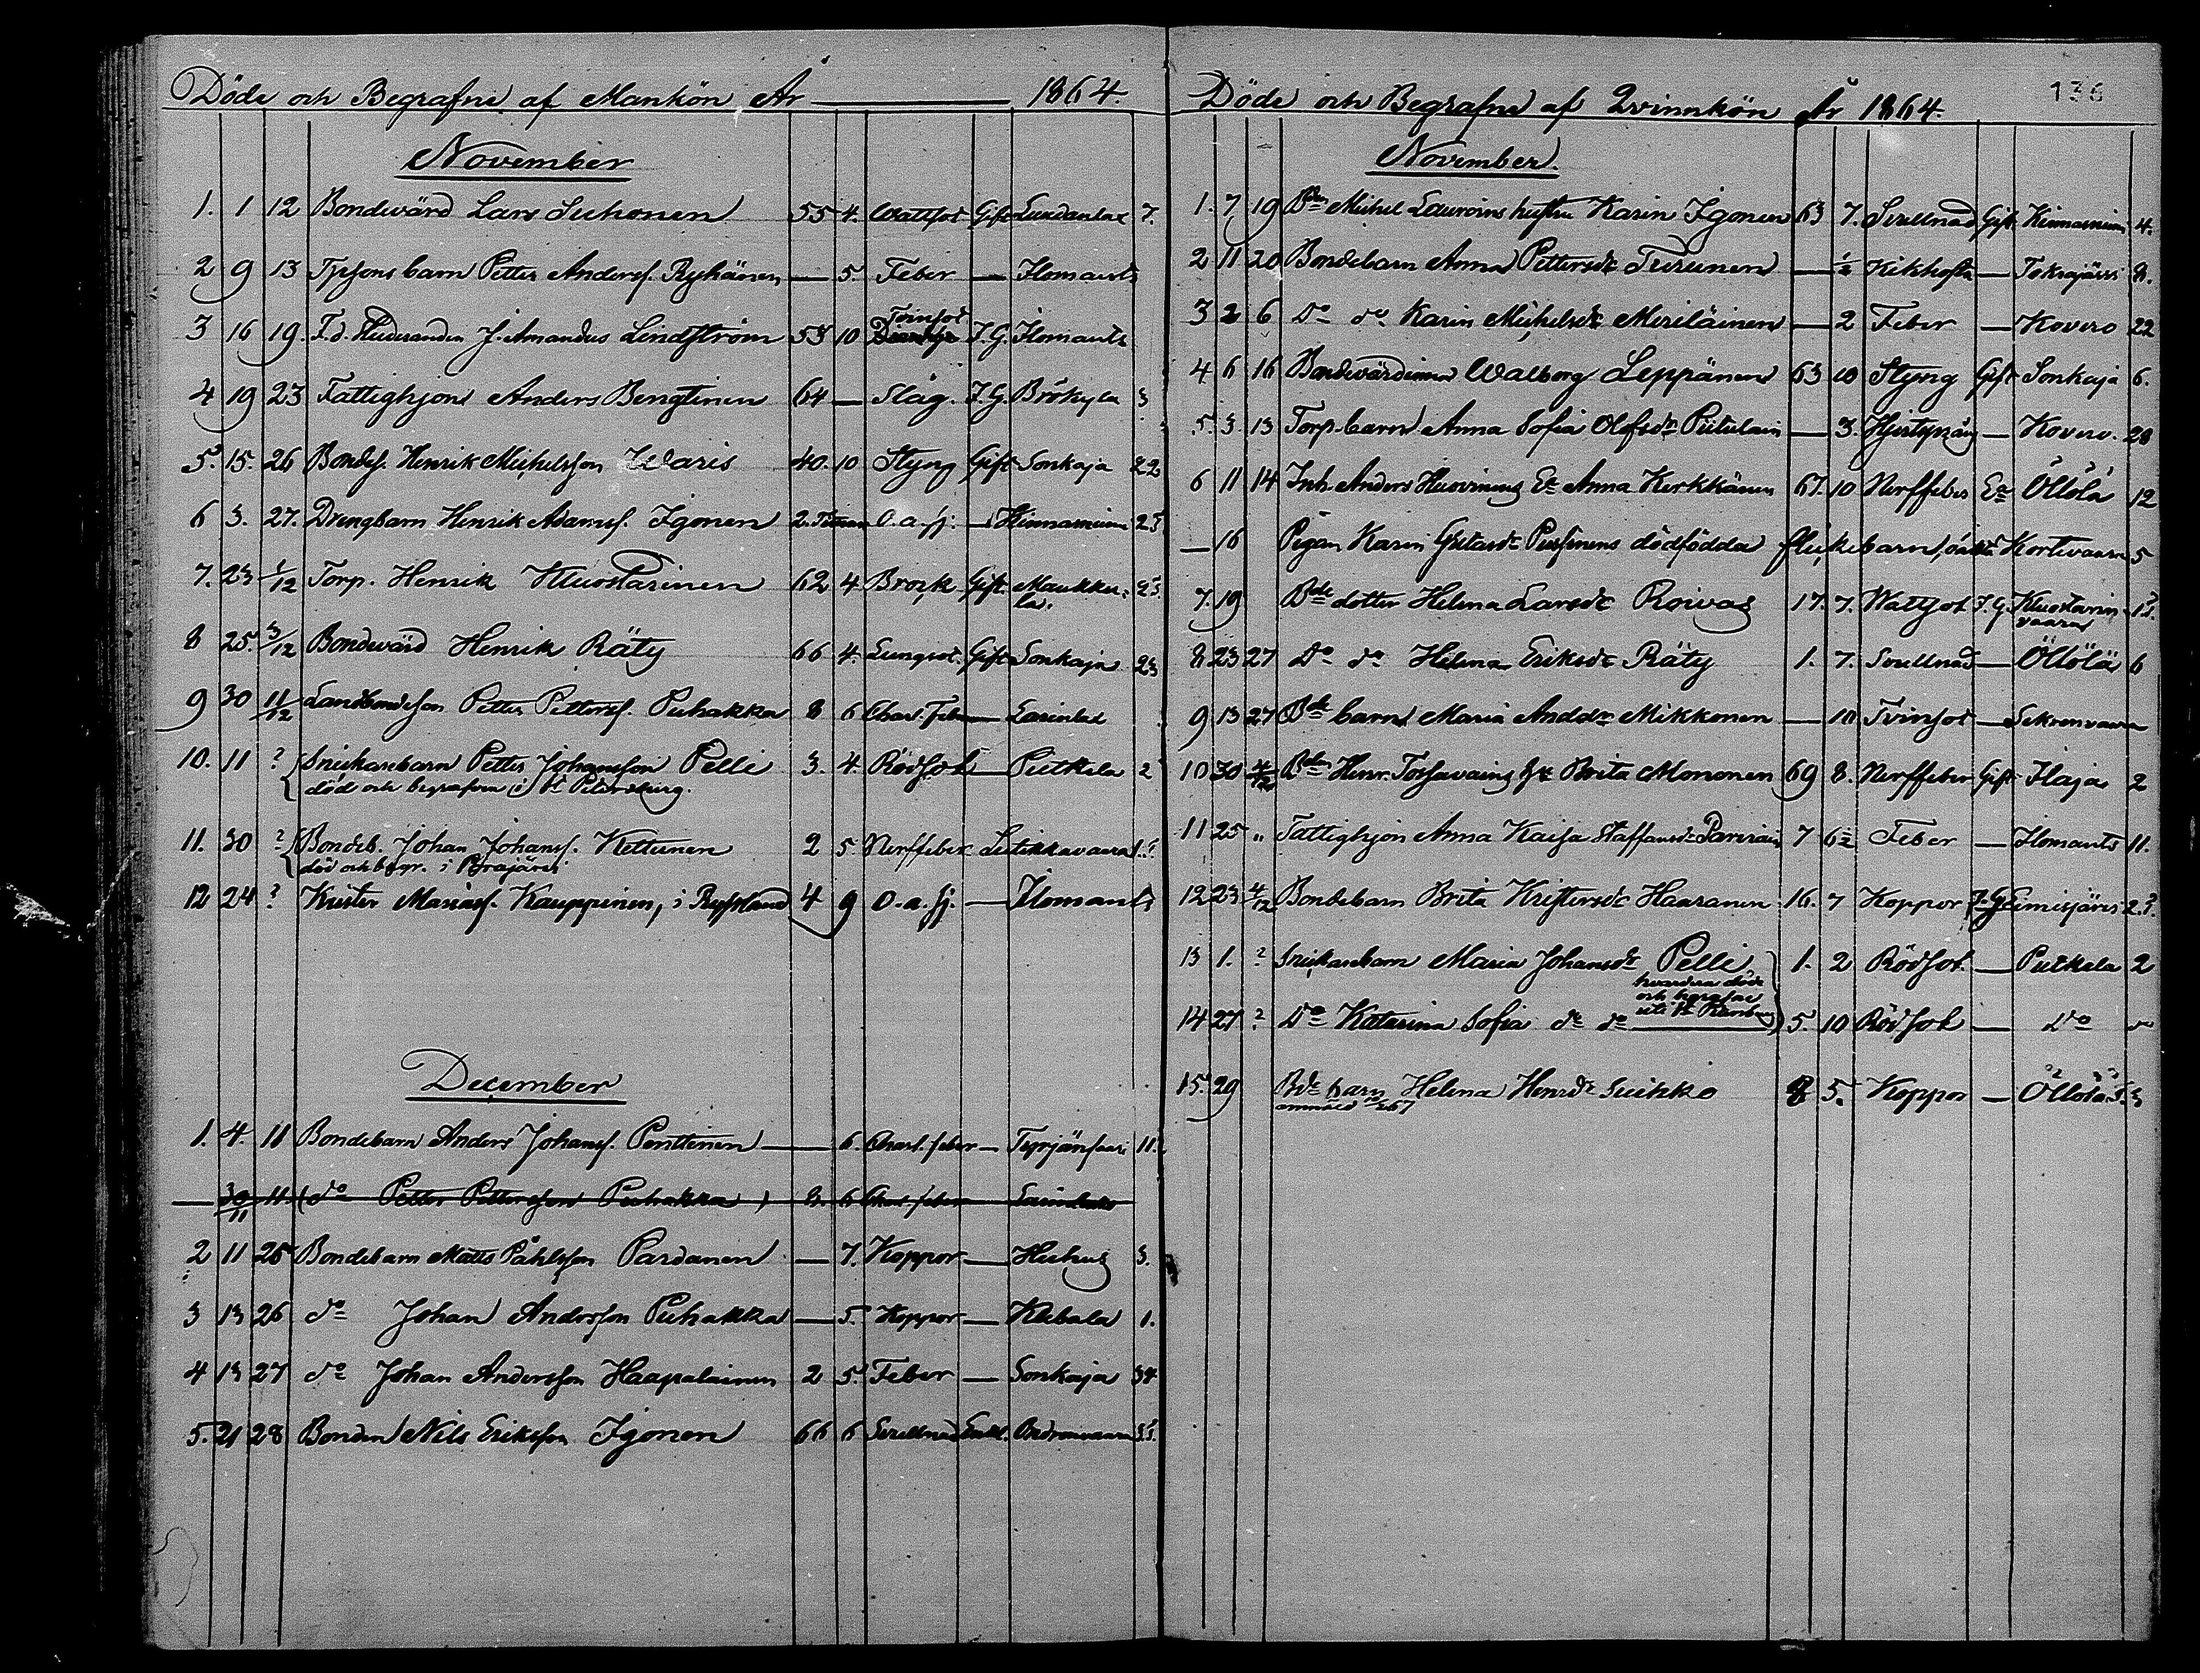 Döde och Begrafne af Mankön År 1864.
November
1. 1 12 Bondevärd Lars Suhonen 55 4. Wattsot Gift 7.
2 9 13 barn Petter Anderss. Ryhänen — 5. Feber — Ilomants
3 16 19. F.d. J. Amandus Lindström 58 10 Tvinsot J.G. Ilomants
4 19 23 Fattighjon Anders Bengtinen 64 — Slag. J.G. Börkyla 3
5. 15. 26 Bondes. Henrik Michelsson Waris 40. 10 Styng Gift Sonkaja 22
6 3. 27. Drengbarn Henrik Adamss. Igonen 2. O.a.sj. — Kinnasniemi 25
7. 23 1/12 Torp. Henrik Kuostarinen 62 4 Gift. Maukku-
la.
8 25. 3/12 Bondevärd Henrik Räty 66 4. Lungsot. Gift Sonkaja 23
9 30 11/12 Landbondeson Petter Petterss. Puhakka 8 6 Charl. feb —
10. 11 ? Snickarebarn Petter Johansson Pelli 3. 4. Rödsot — Putkela 2
död och begrafven i St Petersburg.
11. 30 ? Bondeb. Johan Johanss. Kettunen 2 5. Nerffeber
död och begr. i
12 24 ? Krister Mariass. Kauppinen, i Ryssland 4 9 O.a.sj. — Ilomants
December
1. 4. 11 Bondebarn Anders Johanss. Penttinen — 6. Charl. feber — 11.
— 30/11 11. (do Petter Pettersson Puhakka) 8. 6 Charl. feber
2 11 26 Bondebarn Matts Påhlsson Pardanen — 7. Koppor — Huhus 3.
3 13 26 do Johan Andersson Puhakka — 5. Koppor — 1.
4 13 27 do Johan Andersson Haapalainen 2 5. Feber — Sonkaja 34
5. 21 28 Bonden Nils Eriksson Igonen 66 6 Svullnad Enkl.
Döde och Begrafne af Qvinnkön År 1864.
136
November.
1. 7 19 Bden Michel hustru Karin Igonen 63 7. Svullnad Gift Kinnasniemi 4.
2 11 20 Bondebarn Anna Pettersdr Turunen — 1/2 Kikhosta — Tokrajärvi 8.
3 2 6 Do do Karin Michelsdr Meriläinen — 2 Feber — Kovero 22
4 6 16 Bondevärdinna Walborg Leppänen 63 10 Styng Gift Sonkaja 6.
5. 3 13 Torp. barn Anna Sofia Olofsdr — 3. — Kovero. 28
6 11 14 Inh. Anders Huovinens Ea Anna Kerkkänen 67. 10 Nerffeber Ea Öllölä 12
— 16 Pigan Karin dödfödda flickebarn Kortevaara 5
7. 19 Bde dotter Helena Larsdr Roivas 17. 7. Wattsot J.G. Kuostarin-
vaara
8 23 27 Do do Helena Eriksdr Räty 1. 7. Svullnad — Öllölä 6
9 13 27 Bde barn Maria Anddr Mikkonen — 10 Tvinsot — Sekrenvaara
10 30 Bden Henr. Tossavains Brita Mononen 69 8. Nerffeber Gift Ilaja 2
11 25 „ Fattighjon Anna Kaisa Staffansdr 7 6 1/2 Feber — Ilomants 11.
12 23 4/12 Bondebarn Brita Kristersdr Haaranen 16. 7 Koppor J.G.
13 1. ? Snickarebarn Maria Johansdr Pelli 1. 2 Rödsot — Putkela 2
hvardera döde
och begrafne
uti St Petersburg
14 27 ? Do Katarina Sofia do do 5. 10 Rödsot — Do do
15. 29 Bde barn Helena Henrdr Suikko 8 5. Koppor — Öllölä